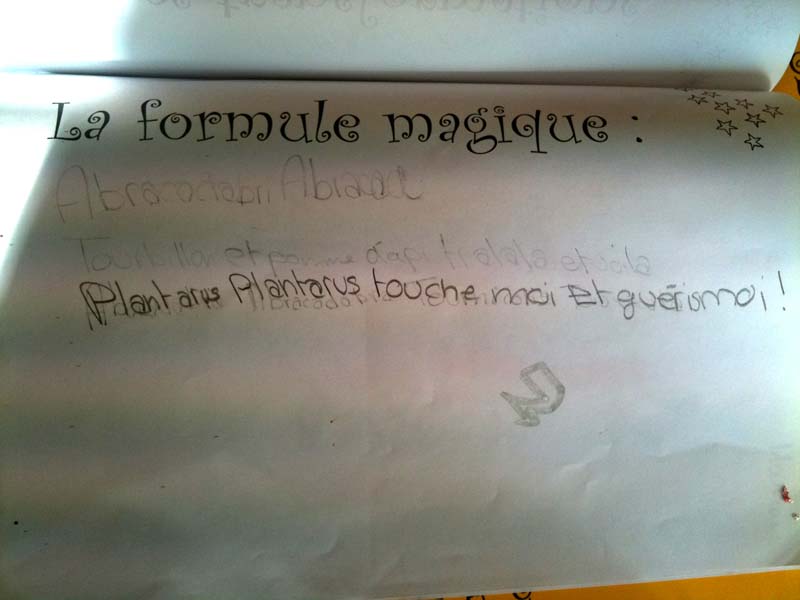 La formule magique :
Abracadabri Abraca
Tourbillon et pomme d'api tralala et voila
Plantarus Plantarus touche moi et guéris moi !